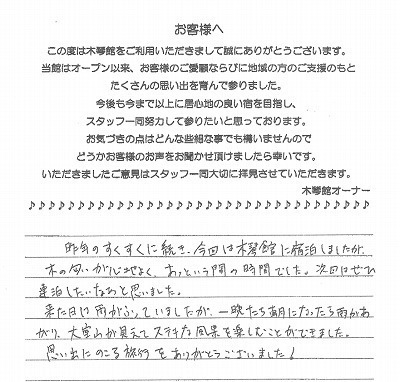 お客様へ
この度は木琴館をご利用いただきまして誠にありがとうございます。
当館はオープン以来、お客様のご愛顧ならびに地域の方のご支援のもと
たくさんの思い出を育んで参りました。
今後も今まで以上に居心地の良い宿を目指し、
スタッフ一同努力して参りたいと思っております。
お気づきの点はどんな些細な事でも構いませんので
どうかお客様のお声をお聞かせ頂けましたら幸いです。
いただきましたご意見はスタッフ一同大切に拝見させていただきます。
木琴館オーナー
♪♪♪♪♪♪♪♪♪♪♪♪♪♪♪♪♪♪♪♪♪♪♪♪♪♪♪♪♪♪♪♪♪♪
昨年のすくすくに続き、今回は木琴館に宿泊しましたが、
木の匂いが心地よく、あっという間の時間でした。次回はぜひ
連泊したいなあと思いました。
来た日は雨がふっていましたが、一晩たち朝になったら雨があ
がり、大室山が見えてステキな風景を楽しむことができました。
思い出にのこる旅行をありがとうございました!